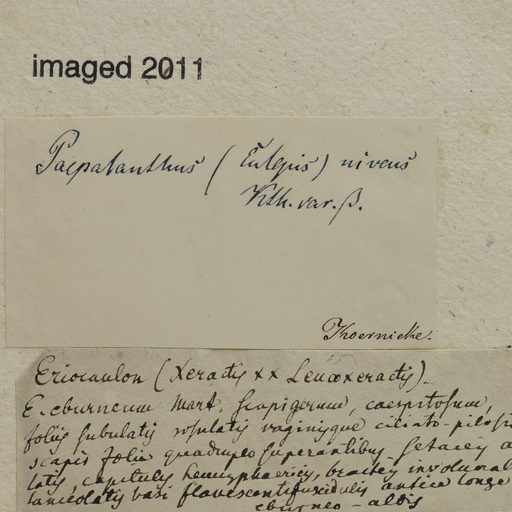 imaged 2011
Paepalanthus (Eulepis) niveus
Kth. var. β.
Koernicke.
Eriocaulon (Xeractis xx Leucoxeractis).
E. eburneum Mart. scapigerum, caespitosum,
foliis subulatis rosulatis vaginisque ciliato-pilosis
scapis folia quadruplo superantibus setaceis
capitulis hemisphaericis, bracteis
lanceolatis basi flavescenti antice longe
eburneo-albis